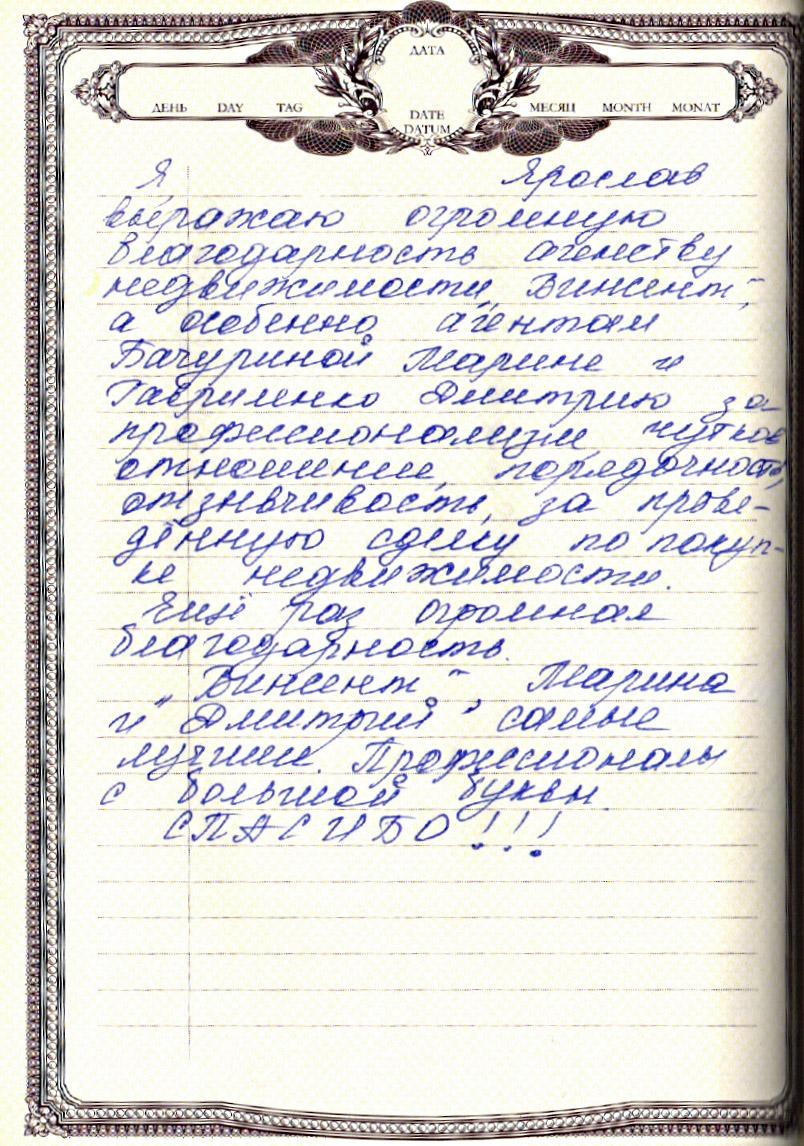 ДАТА
ДЕНЬ DAY TAG DATE МЕСЯЦ MONTH MONAT
DATUM
Я, Ярослав
выражаю огромную
благодарность агенству
недвижимости „Винсент“,
а особенно агентам
Бачуриной Марине и
Гавриленко Дмитрию за
профессионализм, чуткое
отношение, порядочность,
отзывчивость, за прове-
дённую сделку по покуп-
ке недвижимости.
Ещё раз огромная
благодарность.
„Винсент“, Марина
и Дмитрий самые
лучшие. Профессионалы
с большой буквы.
СПАСИБО!!!